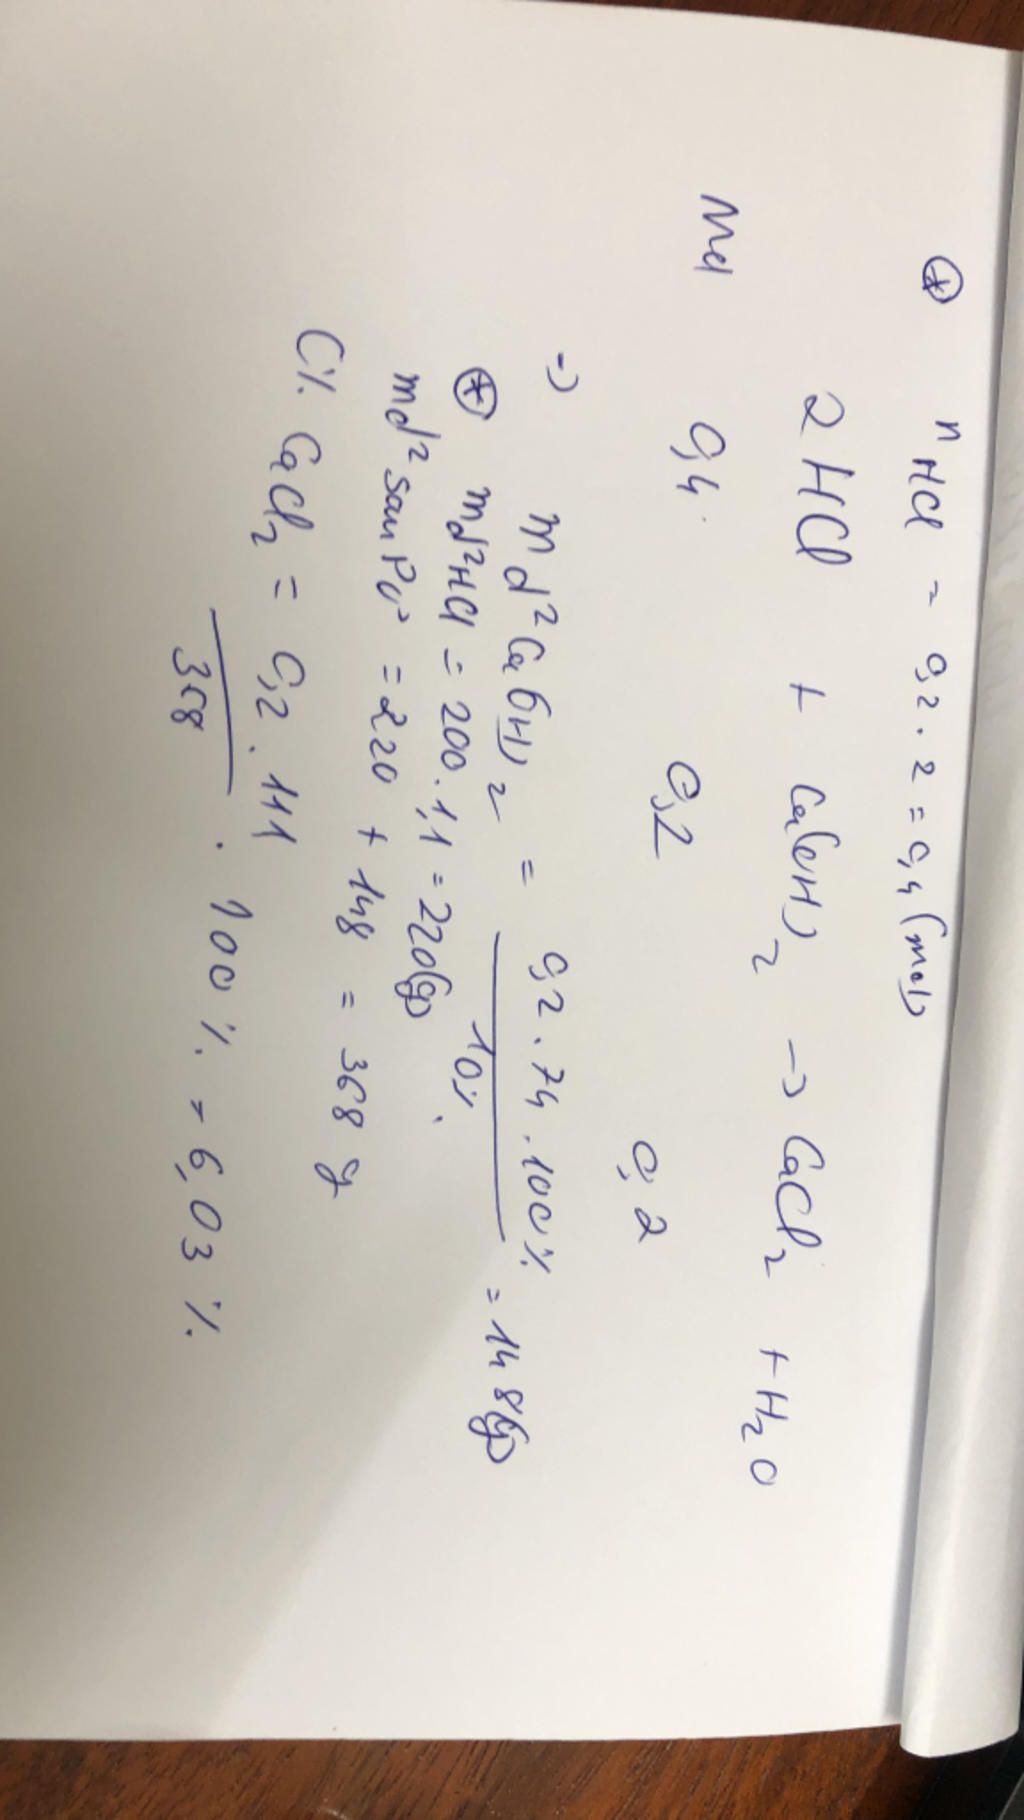 ⊛ nHCl = 0,2 . 2 = 0,4 (mol)
2 HCl + Ca(OH)2 → CaCl2 + H2O
Mol 0,4 0,2 0,2
→ md² Ca(OH)2 = 0,2 . 74 . 100% / 10% = 148(g)
⊛ md² HCl = 200 . 1,1 = 220(g)
md² sau Pứ = 220 + 148 = 368 g
C% CaCl2 = 0,2 . 111 / 368 . 100 % = 6,03 %